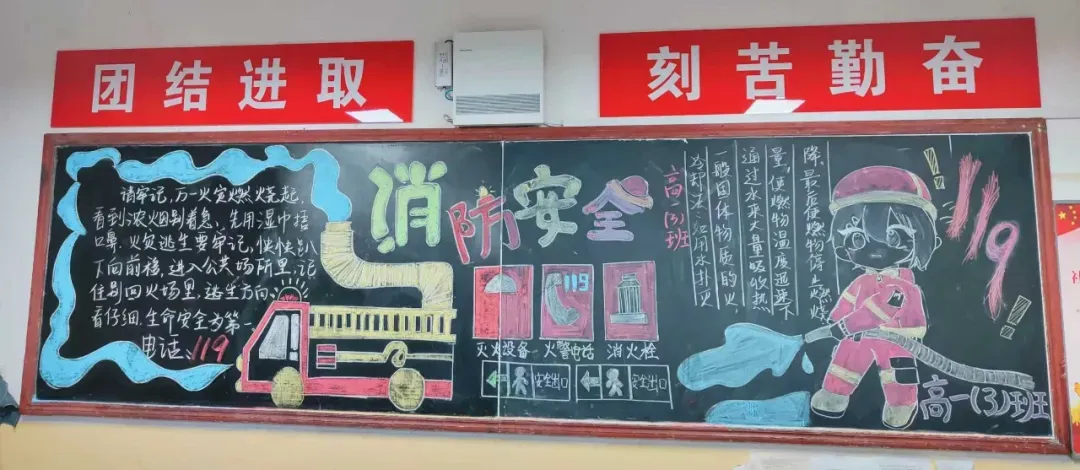 团结进取
刻苦勤奋
请牢记,万一火灾燃烧起,
看到浓烟别着急、先用湿巾捂
口鼻.火灾逃生要牢记,快快趴
下向前移,进入公共场所里、记
住别回火场里.逃生方向、
看仔细.生命安全为第一
电话:119
消防安全
高一(3)班
119
灭火设备
火警电话
消火栓
安全出口
安全出口
降、最后使燃物停止燃烧
量,使燃物温度迅速下
通过水来大量吸收热
一般固体物质的火,
冷却法:以用水扑灭
119!
高一(3)班